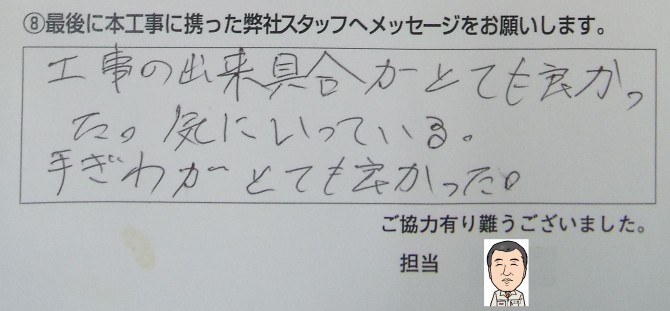 ⑧最後に本工事に携った弊社スタッフへメッセージをお願いします。
工事の出来具合がとても良かっ
た。気にいっている。
手ぎわがとても良かった。
ご協力有り難うございました。
担当